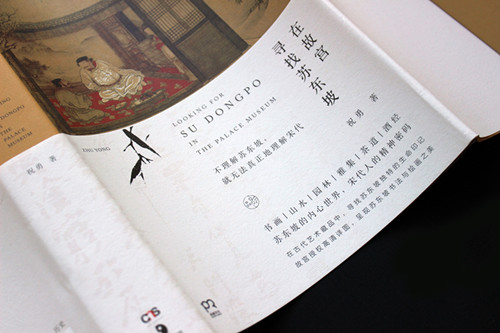 在故宫
寻找苏东坡
祝勇 著
LOOKING FOR
SU DONGPO
IN
THE PALACE MUSEUM
ZHU YONG
不理解苏东坡,
就无法真正地理解宋代
书画|山水|园林|雅集|茶道|酒经
苏东坡的内心世界,宋代人的精神密码
在古代艺术藏品中,寻找苏东坡独特的生命印记
故宫授权高清详图,呈现苏东坡书法与绘画之美
DONGPO
THE
PALACE
MUSEUM
祝勇 著